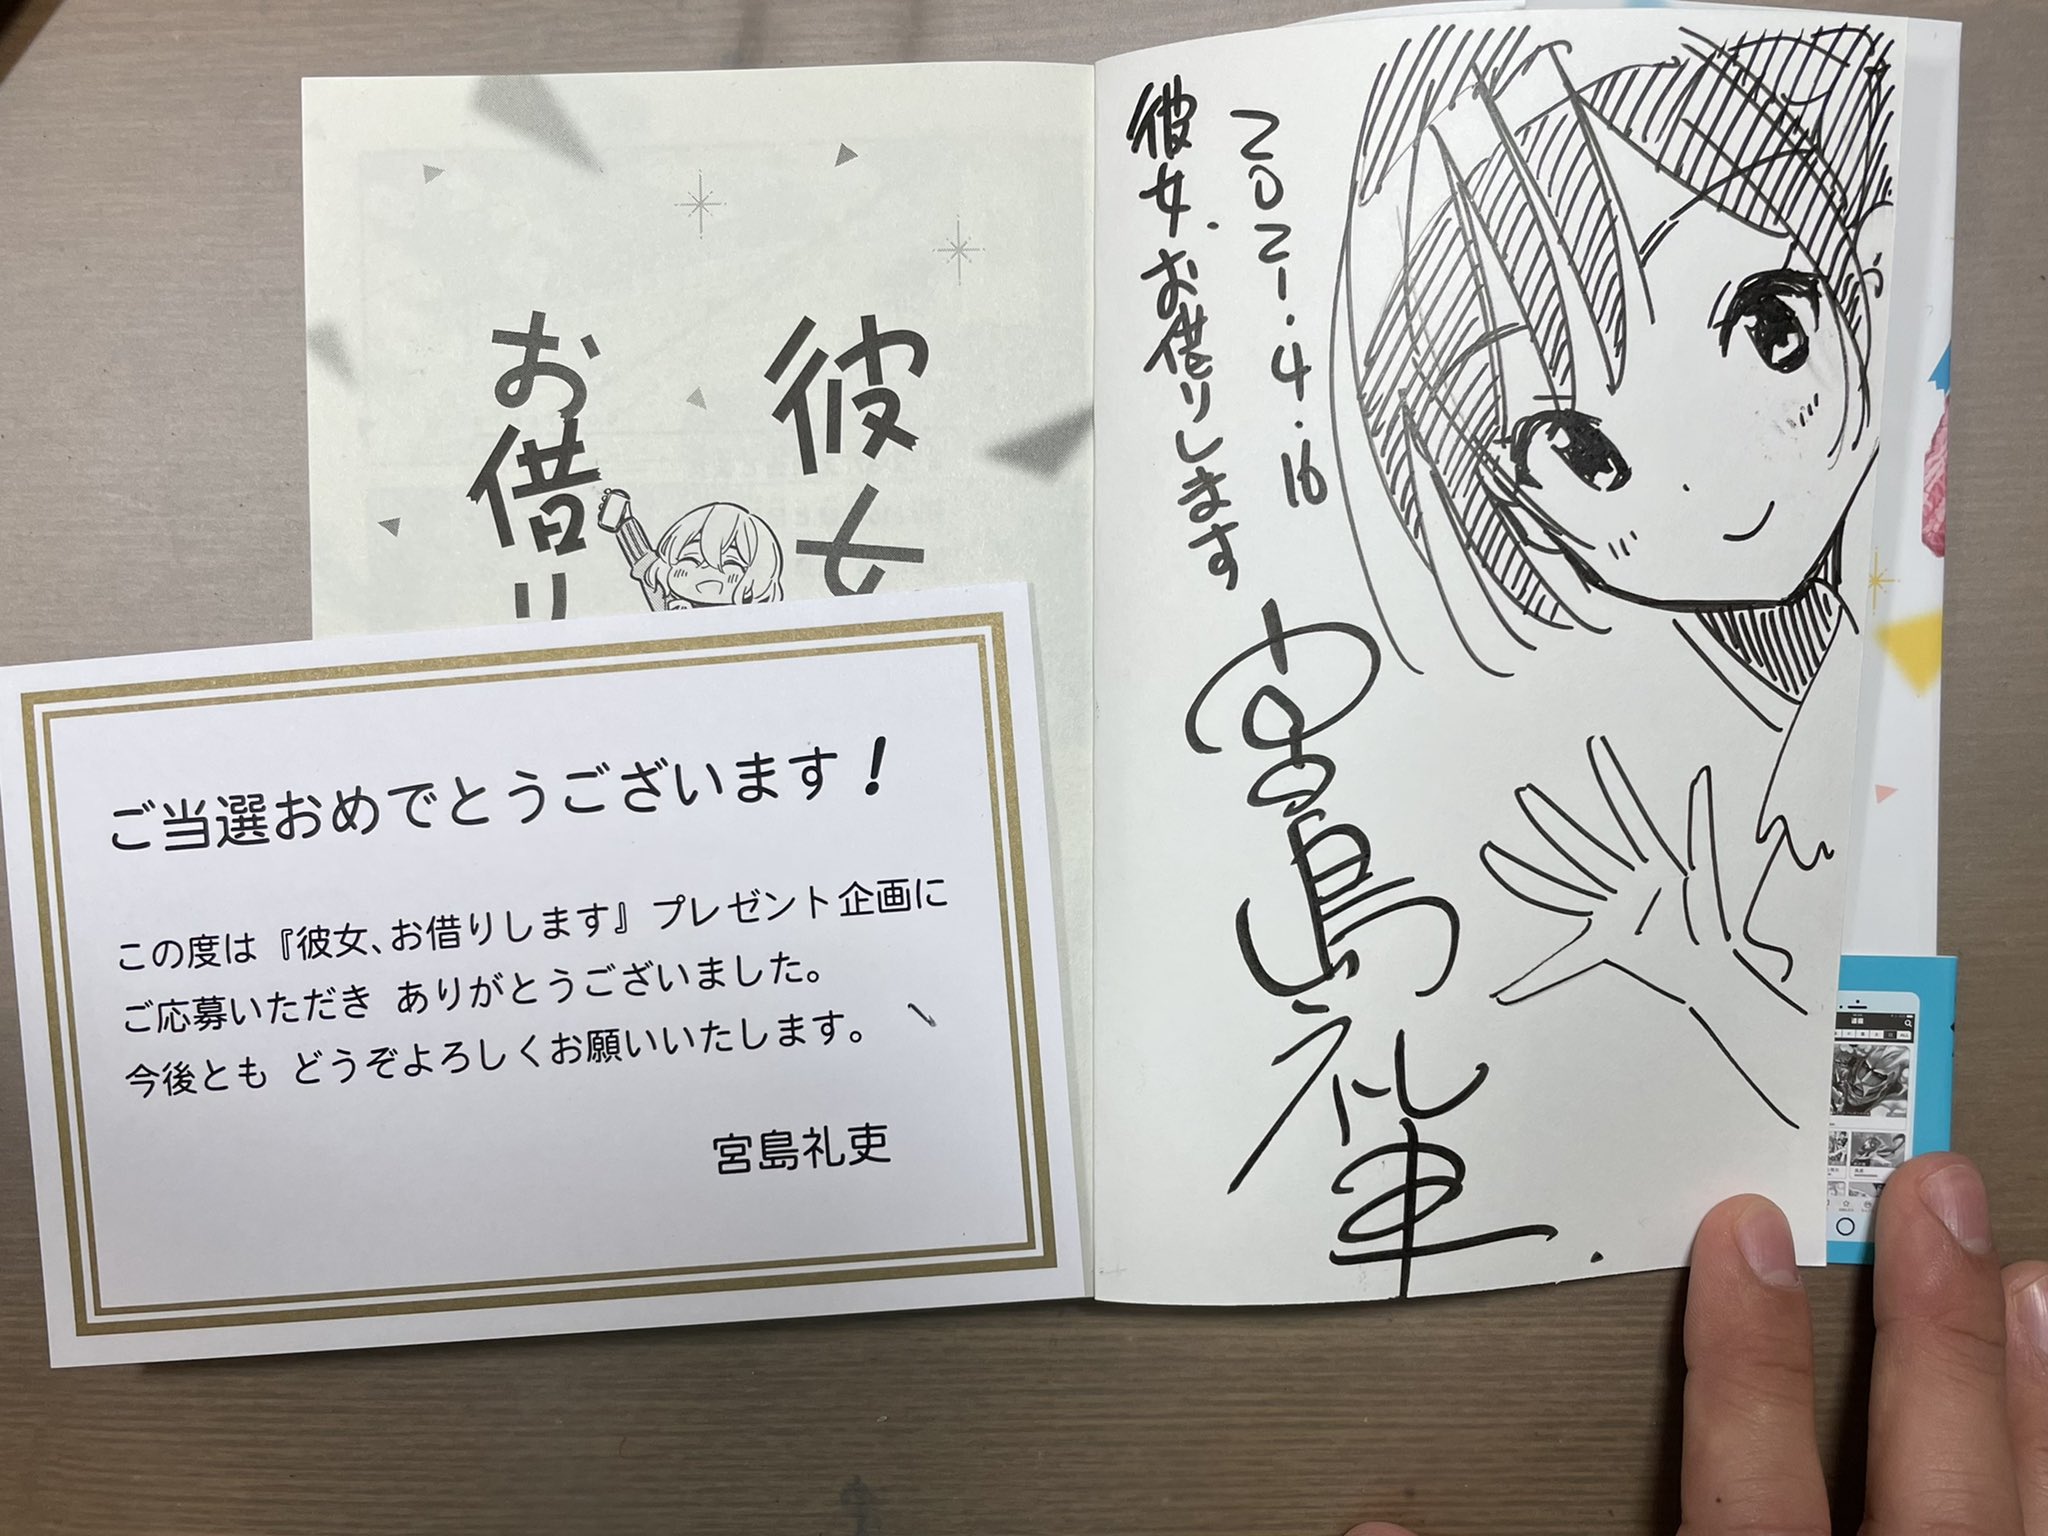 彼女
お借り
2021.4.16
彼女、お借りします
宮島礼吏
ご当選おめでとうございます!
この度は『彼女、お借りします』プレゼント企画に
ご応募いただき ありがとうございました。
今後とも どうぞよろしくお願いいたします。
宮島礼吏